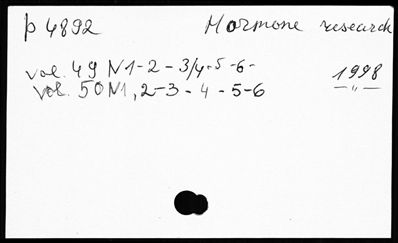 p 4892 Hormone research
vol. 49 N1-2-3/4-5-6- 1998
vol. 50 N1, 2-3-4-5-6 -„-